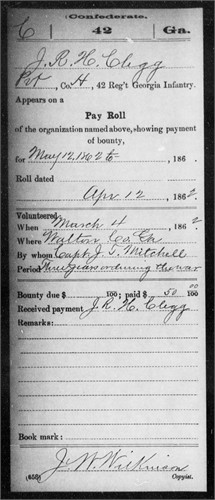 Confederate.
C 42 Ga.
J. R. H. Clegg
Pvt, Co. H, 42 Reg't Georgia Infantry.
Appears on a
Pay Roll
of the organization named above, showing payment
of bounty,
for May 12, 1862, 186 .
Roll dated
Apr 12, 1862.
Volunteered:
When March 4, 1862
Where Walton Co. Ga.
By whom Capt. J. T. Mitchell
Period Three years or during the war
Bounty due $ 100; paid $ 50 00/100
Received payment J. R. H. Clegg
Remarks:
Book mark:
J. W. Wilkinson
(650) Copyist.